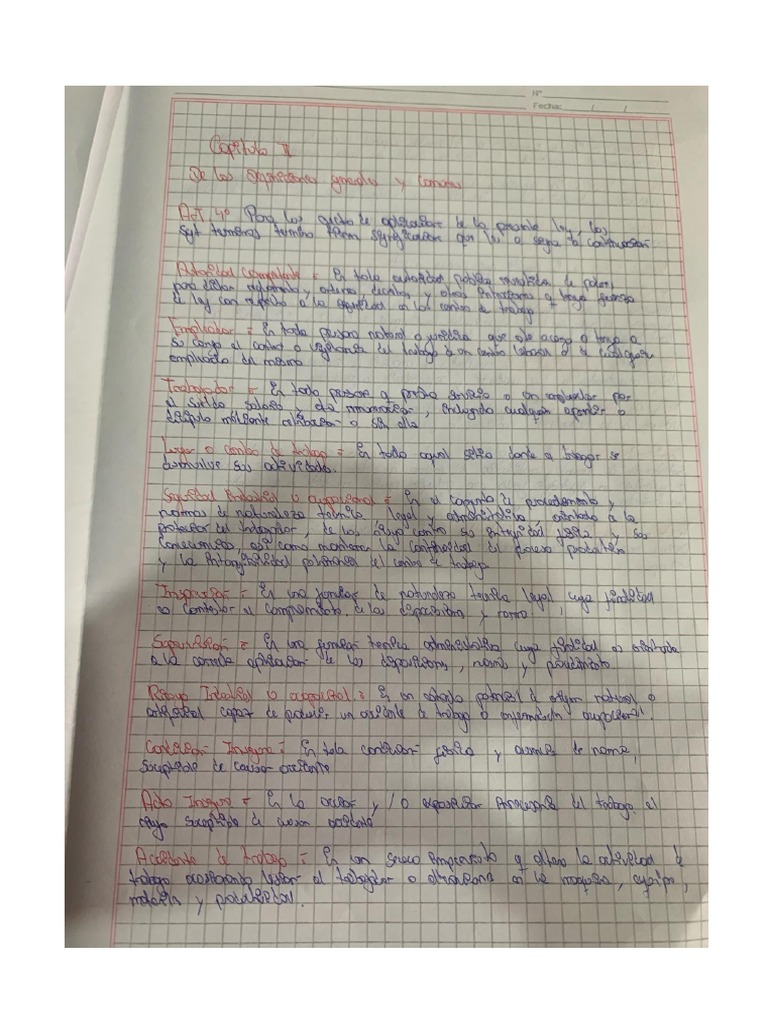 N°
Fecha: / /
Capitulo II
De las Definiciones generales y comunes
Art. 4° Para los efecto de aplicacion de la presente ley, los
sgt termino tienen significacion que les a segna a continuacion
Autoridad Competente = Es toda autoridad publica investida de poder,
para dictar reglamento y ordenes, decretos y otras instrucciones q tenga fuerza
de ley con respecto a la seguridad en los centro de trabajo
Empleador = Es toda persona natural o juridica que de acargo o tenga a
su cargo el control o vigilancia del trabajo d un centro laboral o d cualquier
empleado del mismo
Trabajador = Es toda persona q presta servicio a un empleador por
el sueldo salario y otra remuneracion, incluyendo cualquier aprendiz o
discipulo mediante retribucion o sin ella
Lugar o centro de trabajo = Es todo aquel sitio donde a trabajar se
desenvuelve sus actividades.
Seguridad Industrial u ocupacional = Es el conjunto de procedimiento y
normas de naturaleza tecnica, legal y administrativa, orientado a la
proteccion del trabajador, de los riesgo contra su integridad fisica y sus
consecuencias, asi como mantener la continuidad del proceso productivo
y la intangibilidad patrimonial del centro de trabajo
Inspeccion = Es una funcion de naturaleza tecnica legal cuya finalidad
es constatar el cumplimiento de las disposiciones y norma
Supervision = Es una funcion tecnica administrativa cuya finalidad es orientada
a la correcta aplicacion de las disposiciones, normas y procedimiento
Riesgo Industrial u ocupacional = Es un estado potencial de origen natural o
artificial capaz de producir un accidente de trabajo o enfermedad ocupacional.
Condicion Insegura = Es toda condicion fisica y ausencia de norma,
suceptible de causar accidente
Acto Inseguro = Es la accion y/o exposicion innecesaria del trabajo al
riesgo suceptible de causar accidente
Accidente de trabajo = Es un suceso imprevisto q altera la actividad de
trabajo ocasionando lesion al trabajador o en la maquina, equipo,
material y productividad.